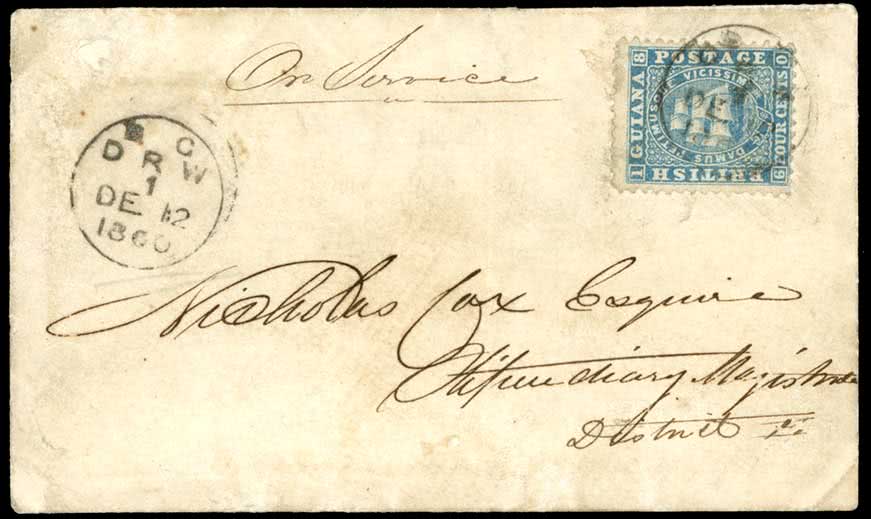 On Service
POSTAGE
GUIANA
BRITISH
FOUR CENTS
1 8 6 0
DAMUS PETIMUSQUE VICISSIM
DE
B C
D R W
1
DE 12
1860
Nicholas Cox Esquire
Stipendiary Magistrate
District